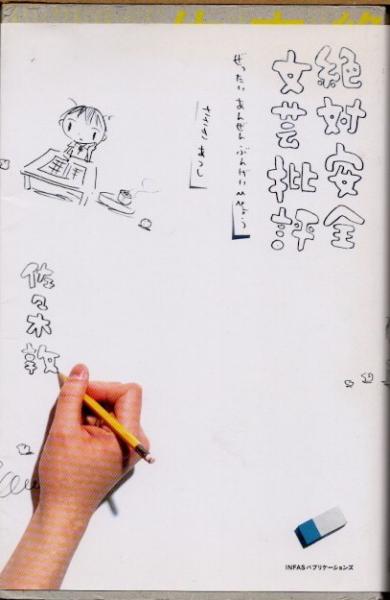 絶対安全
文芸批評
ぜったい あんぜん ぶんげい ひひょう
ささき あつし
佐々木敦
INFASパブリケーションズ